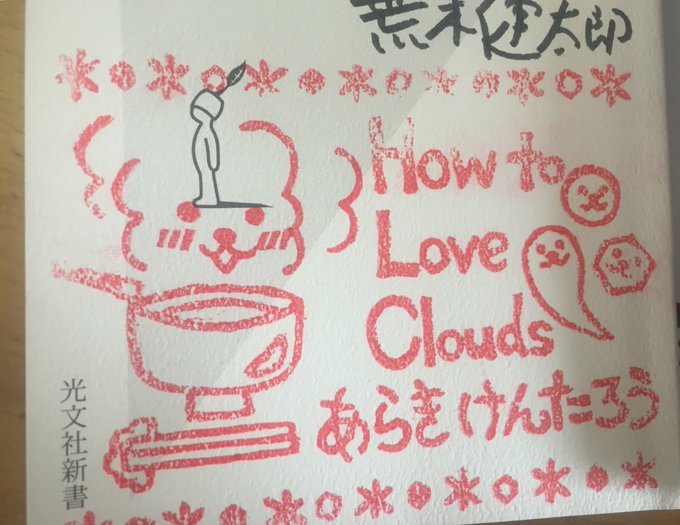 荒木健太郎
How to
Love
Clouds
あらきけんたろう
光文社新書